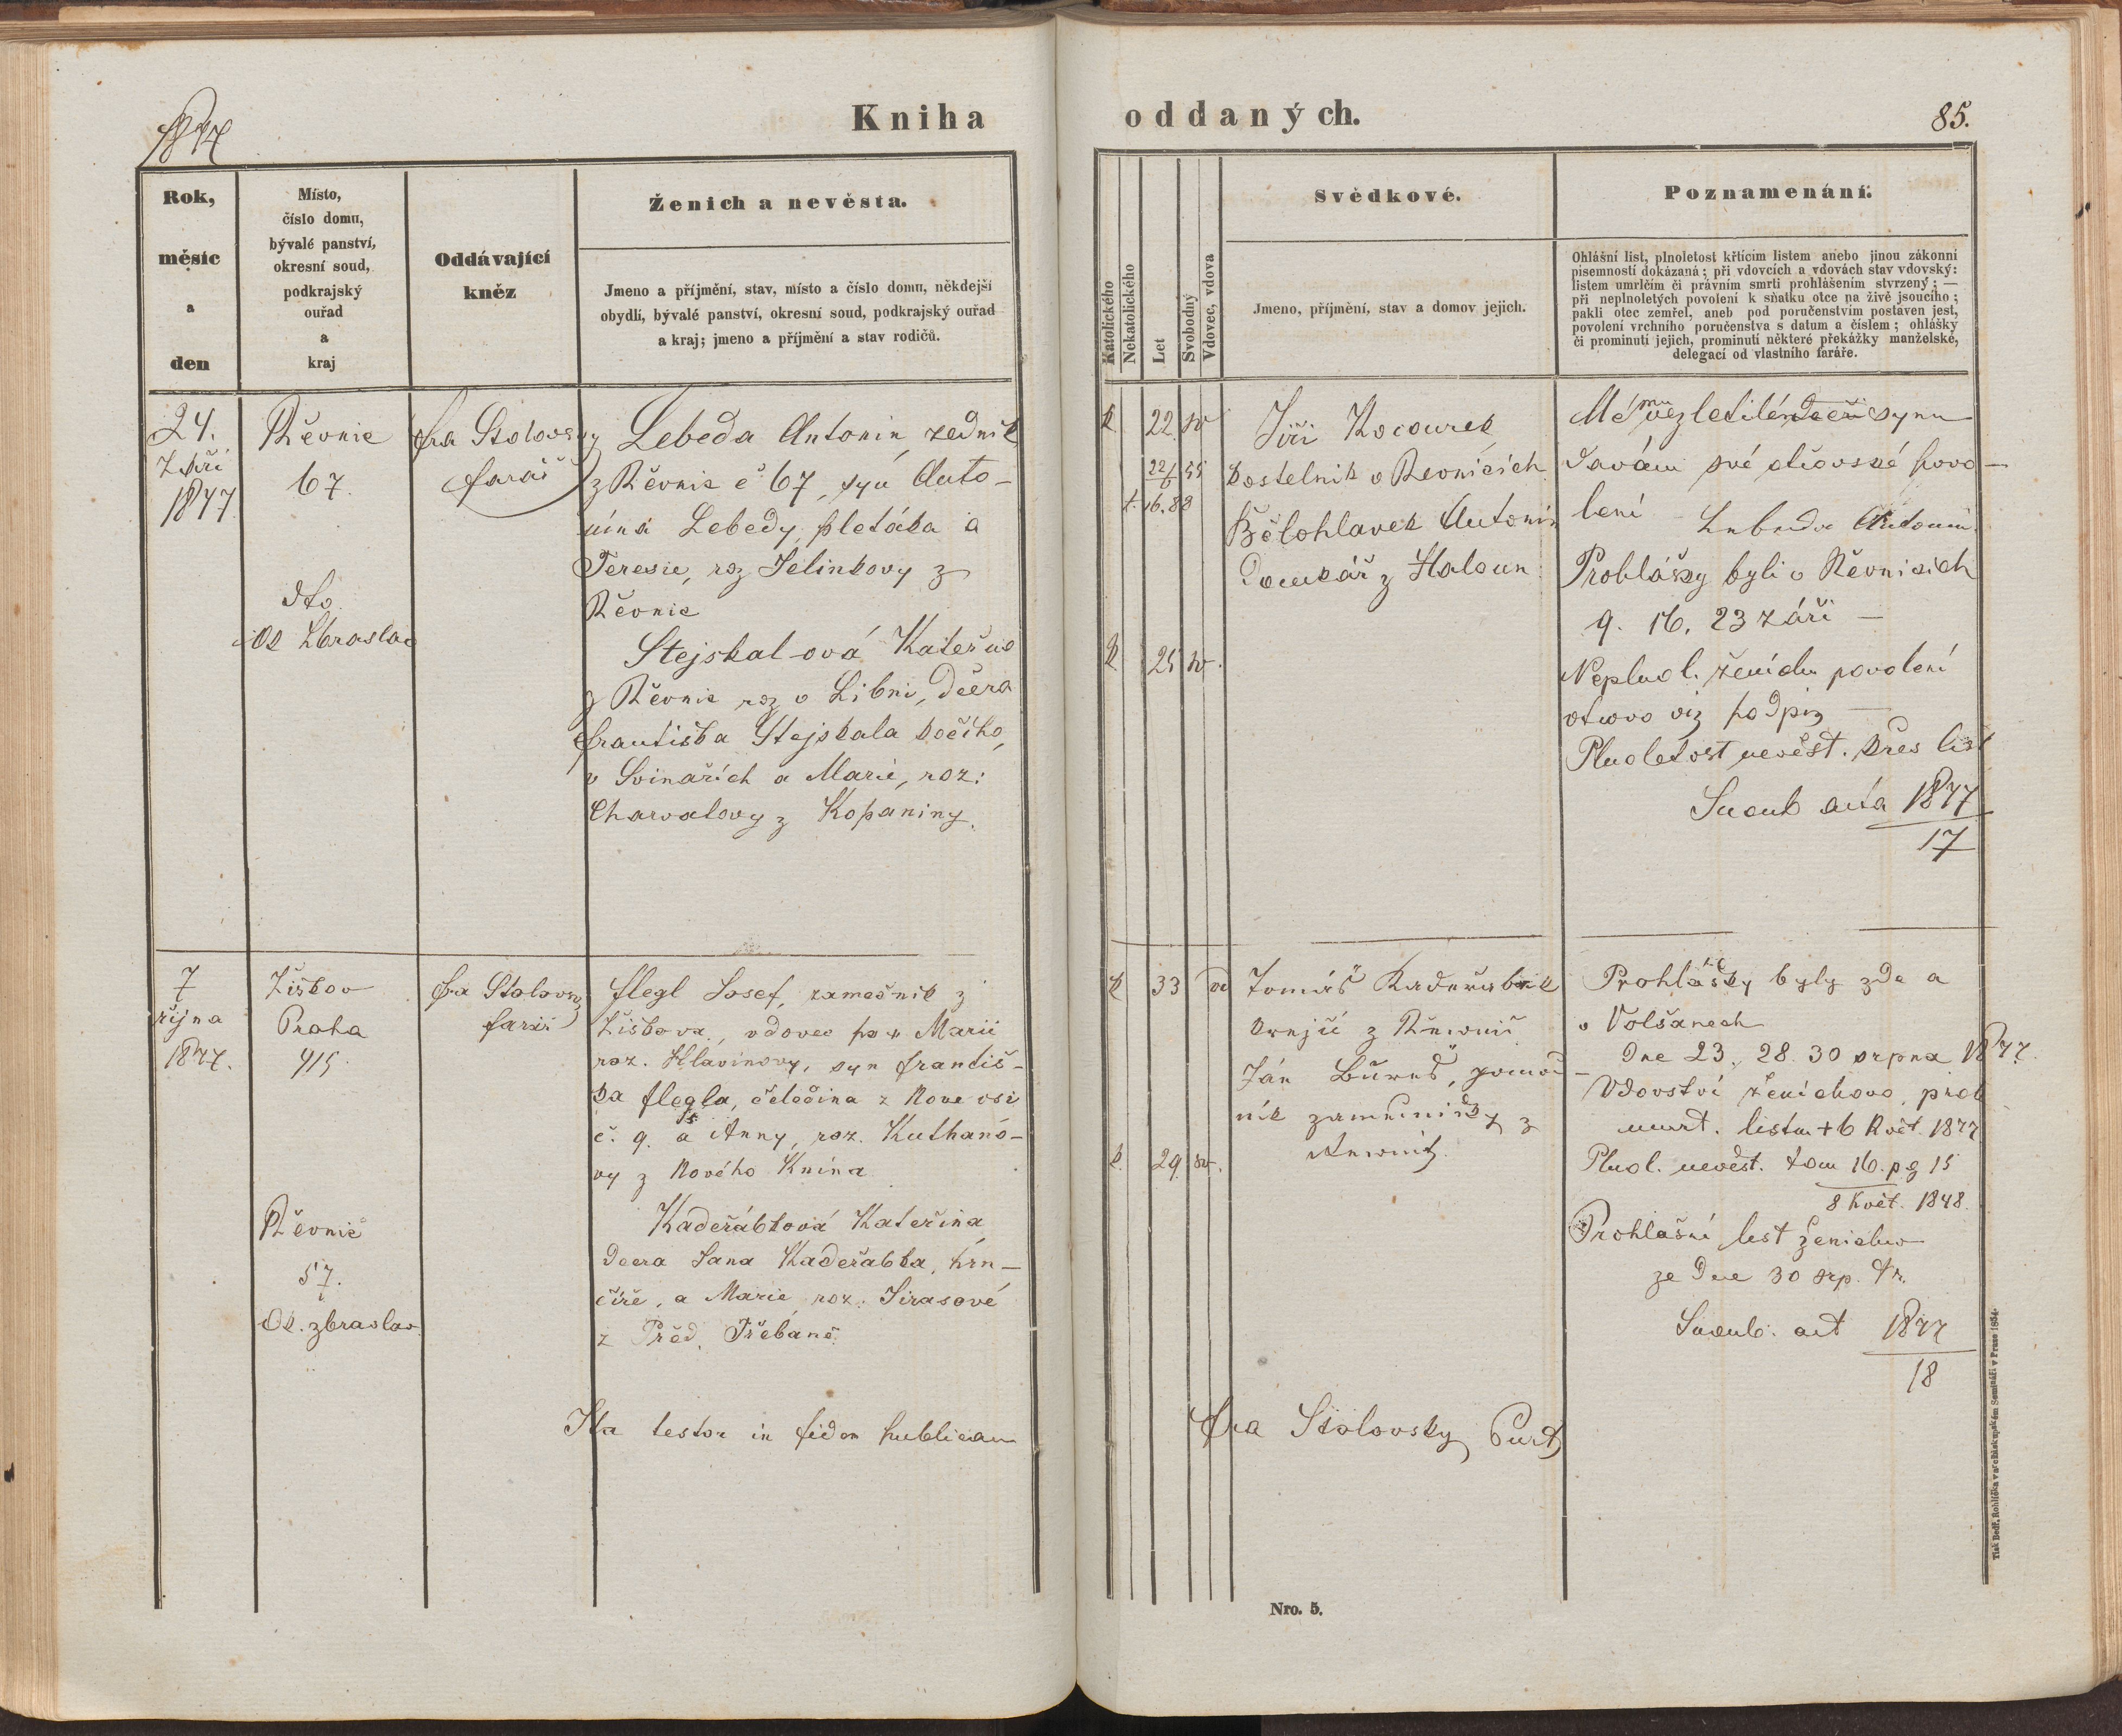 1877
Kniha
oddaných.
85.
Rok,
měsíc
a
den
Místo,
číslo domu,
bývalé panství,
okresní soud,
podkrajský
ouřad
a
kraj
Oddávající
kněz
Ženich a nevěsta.
Jmeno a příjmění, stav, místo a číslo domu, někdejší
obydlí, bývalé panství, okresní soud, podkrajský ouřad
a kraj; jmeno a příjmění a stav rodičů.
Katolického
Nekatolického
Let
Svobodný
Vdovec, vdova
Svědkové.
Jmeno, příjmění, stav a domov jejich.
Poznamenání.
Ohlášní list, plnoletost křticím listem anebo jinou zákonní
písemností dokázaná; při vdovcích a vdovách stav vdovský:
listem umrlčím či právním smrti prohlášením stvrzený; —
při neplnoletých povolení k sňatku otce na živě jsoucího;
pakli otec zemřel, aneb pod poručenstvím postaven jest,
povolení vrchního poručenstva s datum a číslem; ohlášky
či prominutí jejich, prominutí některé překážky manželské,
delegací od vlastního faráře.
24.
Září
1877
Řevnic
67.
dto
Ok Zbraslav
Fra Stolovsky
farář
Lebeda Antonín, zedník
z Řevnic č 67, syn Anto-
nína Lebedy, pletáka a
Teresie, roz Jelinkovy z
Řevnic
Stejskal-ová Kateřina
z Řevnic roz v Libni, dcera
Františka Stejskala kočího,
v Svinařích a Marie, roz:
Charvatovy z Kopaniny.
k
22
sv
22/6 55
t. 16. 88
k
25
sv.
Jiří Kocourek
kostelnik v Řevnicích
Bělohlavek Antonín
Domkář z Haloun
Mému nezletilém dceři synu
dávám své otcovské povo-
lení
Lebeda Antonin.
Prohlášky byli v Řevnicich
9. 16. 23 září —
Neplnol. ženichu povolení
otcovo viz podpis —
Plnoletost nevěst. křes list
Snoub acta 1877
17
7
října
1877.
Žižkov
Praha
415.
Řevnic
57.
Ok. zbraslav
Fra Stolovsky
farář
Flegl Josef, zamečnik z
Žižkova, vdovec po + Marii
roz. Hlavínovy, syn Františ-
ka Flegla, čeledína z Nove vsi
č. 9. a Anny, roz. Kuthano-
vy z Nového Knína
Kadeřábková Kateřina,
dcera Jana Kadeřabka, hrn-
číře, a Marie roz. Jirasové
z Před. Třebaně.
k
33
vd
k.
29
sv.
Tomáš Kadeřabek
krejčí z Řewnic
Ján Bureš, pomoc-
ník zamečnický z
Řewnic
Prohlášky byly zde a
v Volšanech
Dne 23. 28. 30 srpna 1877.
Vdovství ženichovo, prok
umrt. listem + 6 Květ. 1877
Plnol. nevěst. tom 16. pg 15
8 Květ. 1848.
Prohlašní list ženichův
ze dne 30 srp. t.r.
Snoub. act 1877
18
Ita testor in fidem publicam
Fra Stolovsky Curat
Nro. 5.
Tisk Bedř. Rohlíčka v arcibiskupském Semináři v Praze 1854.